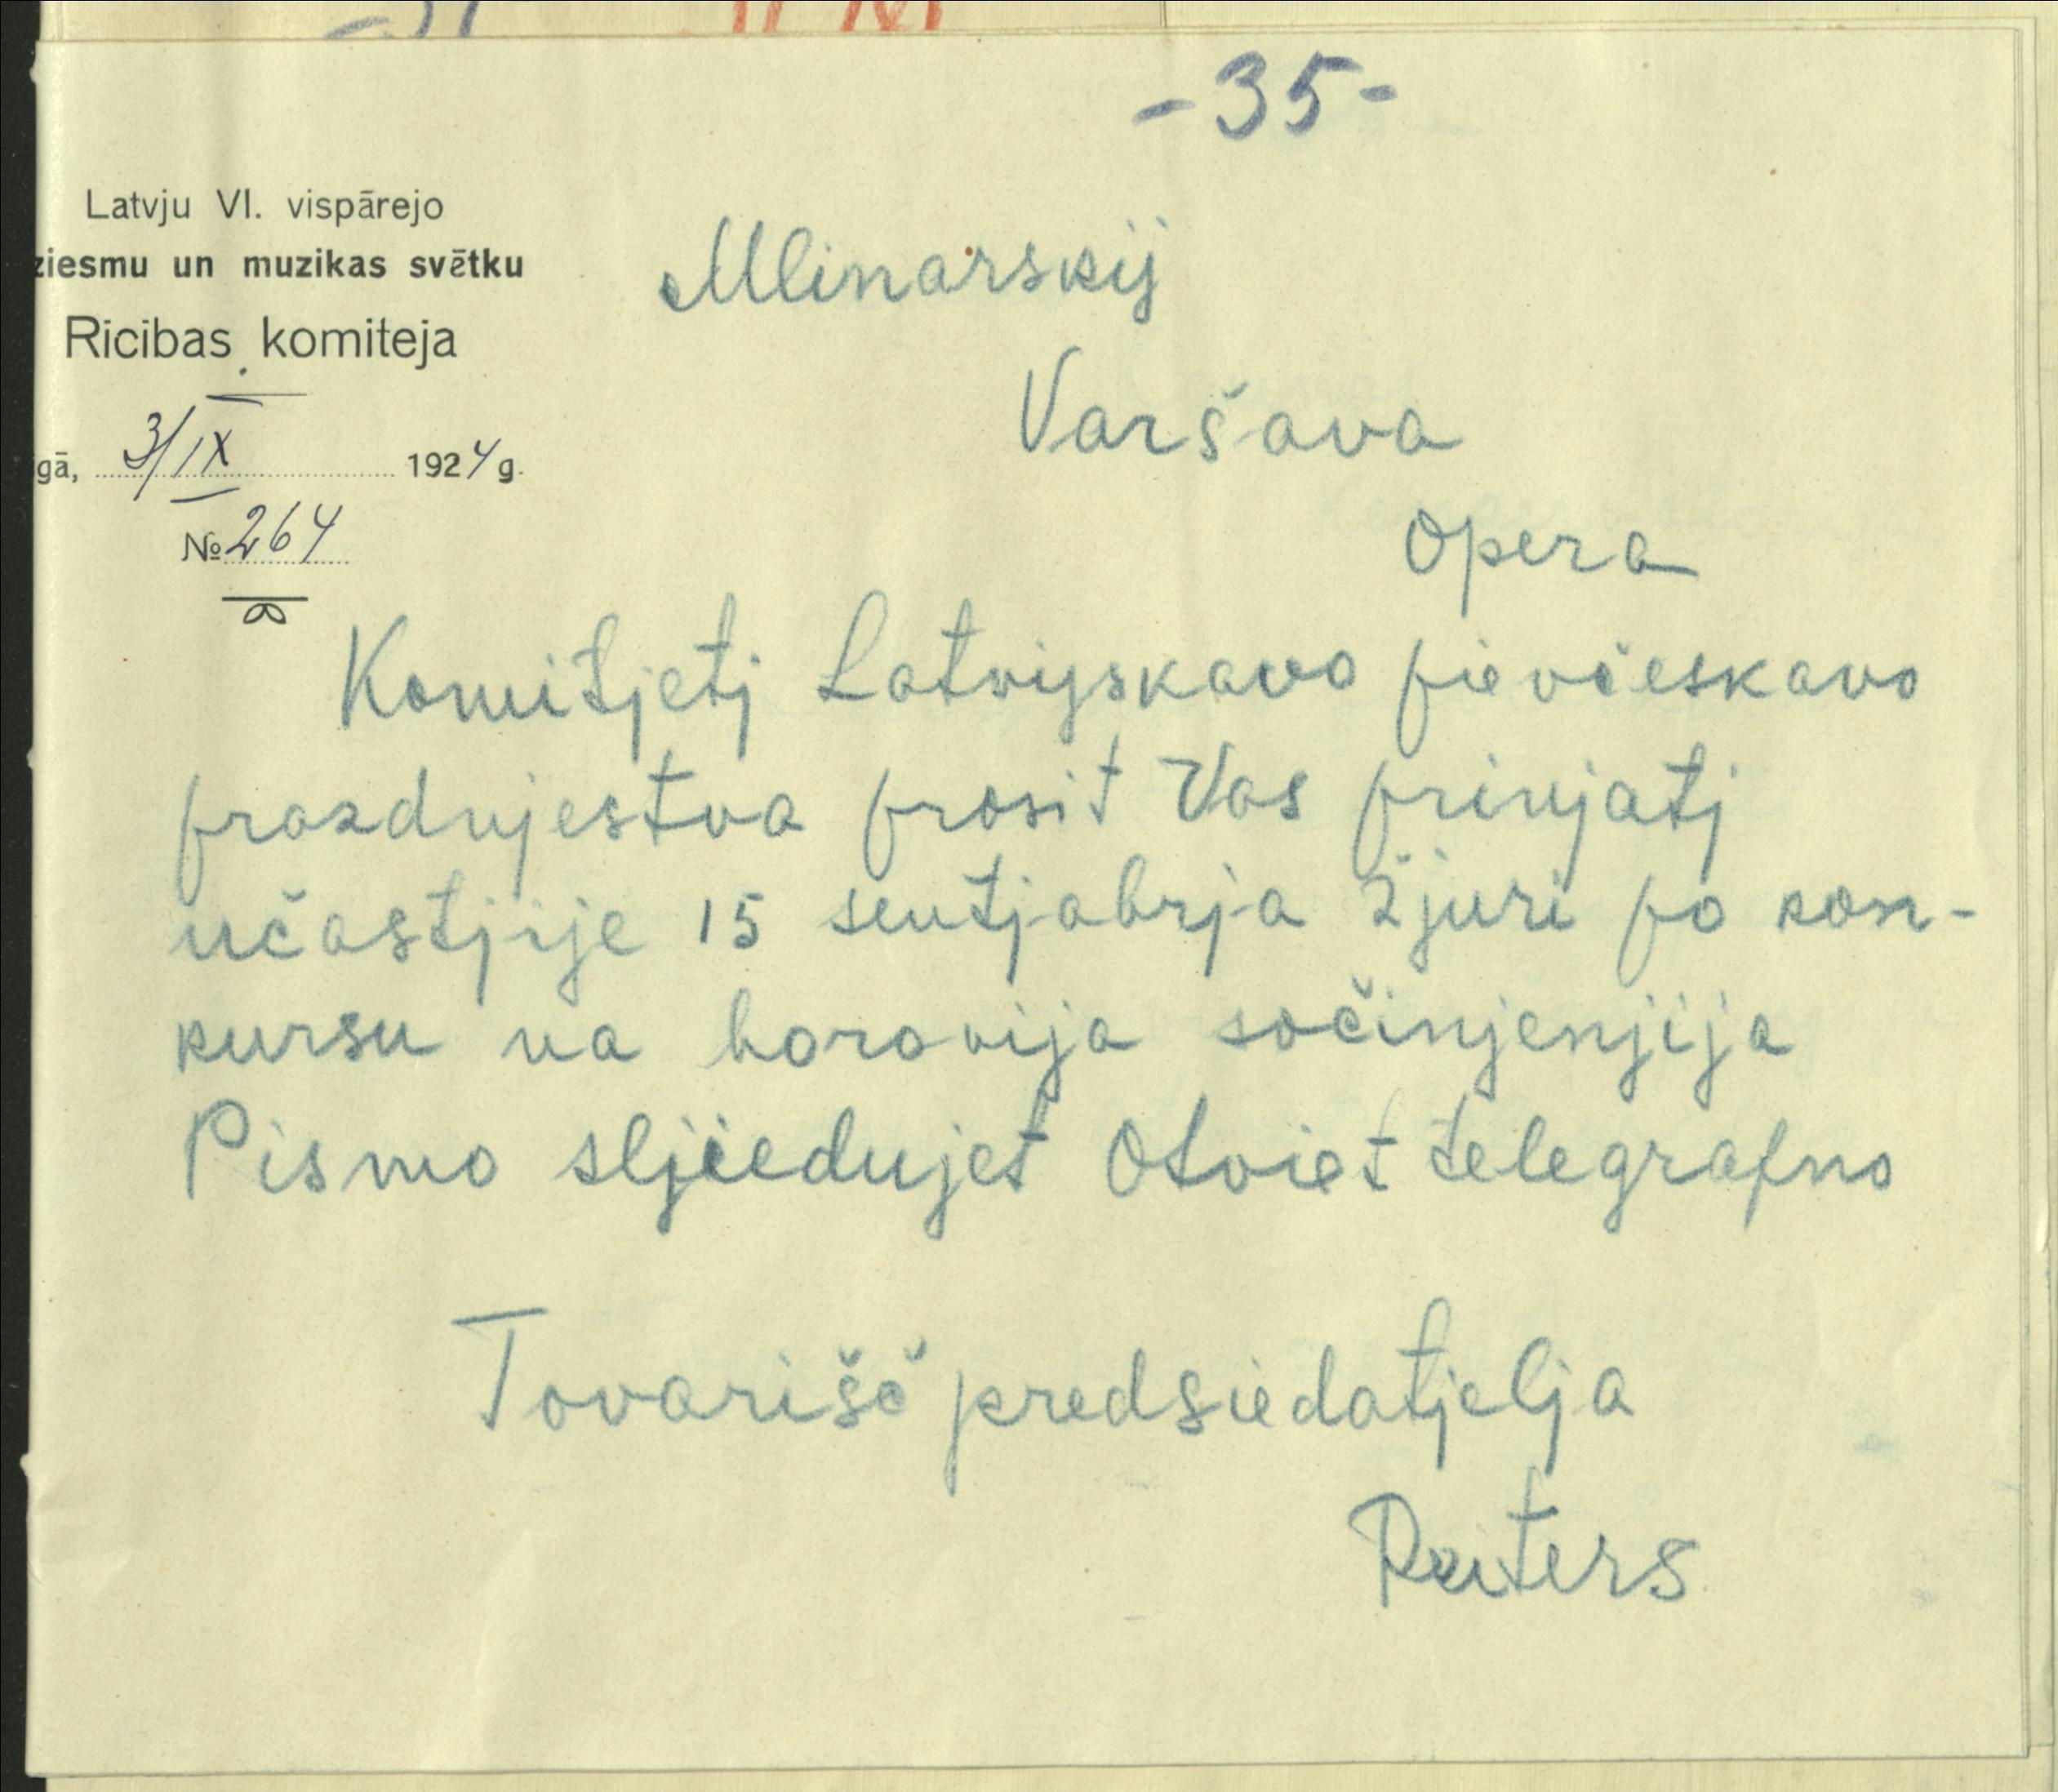 -35-
Latvju VI. vispārejo
ziesmu un muzikas svētku
Rīcibas komiteja
gā, 3/IX 1924 g.
№ 264
Mlinarskij
Varšava
Opera
Komitjetj Latvijskavo pievčeskavo
prazdnjestva prosit Vas prinjatj
učastjije 15 sentjabrja žjuri po kon-
kursu na horovija sočinjenjija
Pismo sljiedujet Otviet telegrafno
Tovarišč predsiedatjelja
Reiters